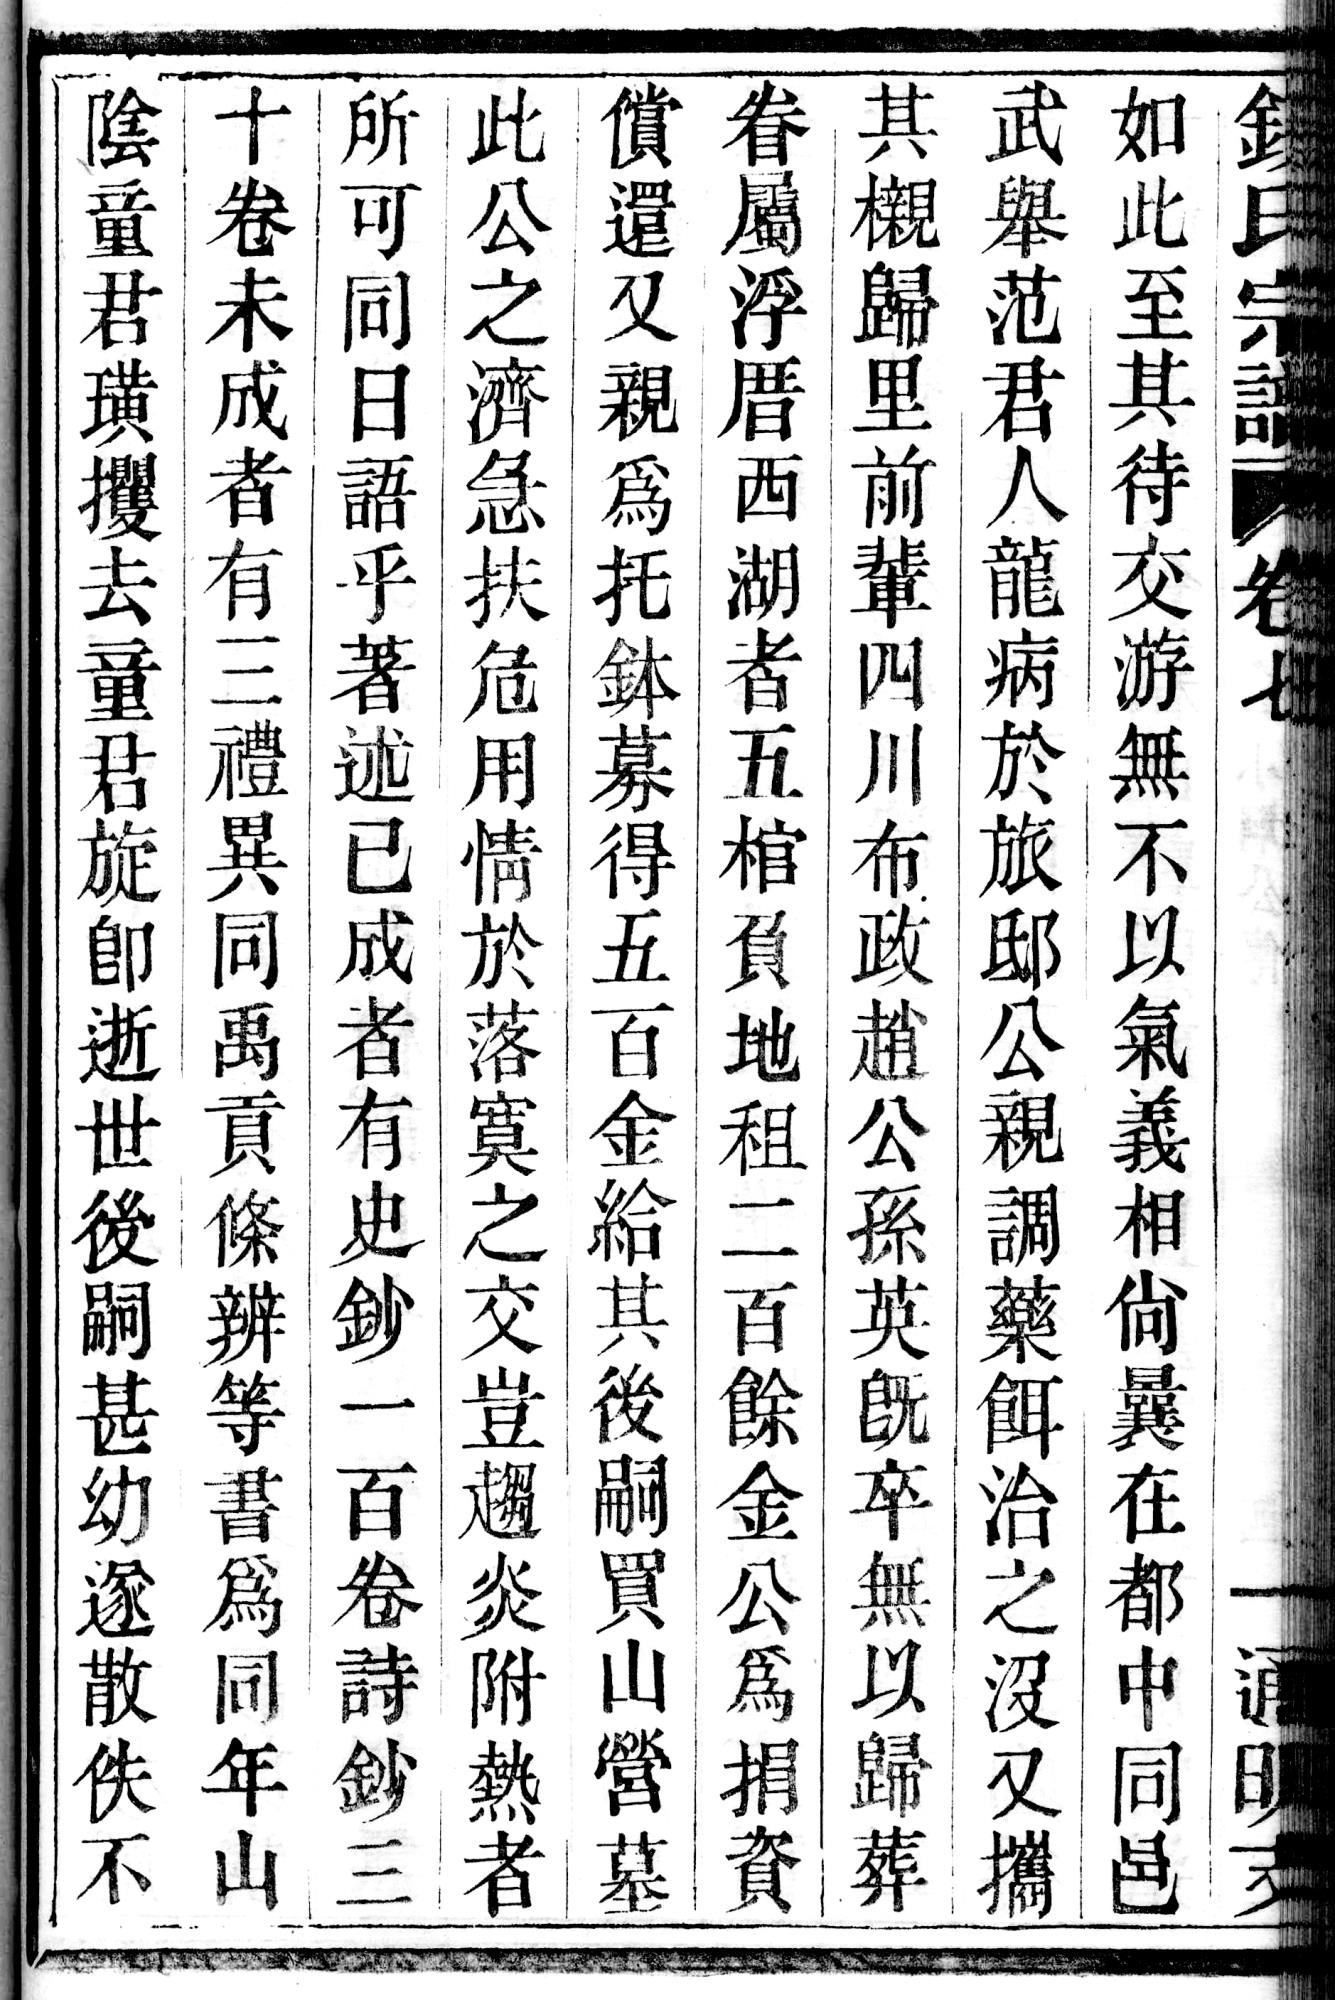 氏宗譜 卷七 通明
如此至其待交游無不以氣義相尙曩在都中同邑
武舉范君人龍病於旅邸公親調藥餌治之沒又攜
其櫬歸里前輩四川布政趙公孫英旣卒無以歸葬
眷屬浮厝西湖者五棺負地租二百餘金公爲捐資
償還又親爲托鉢募得五百金給其後嗣買山營墓
此公之濟急扶危用情於落寞之交豈趨炎附熱者
所可同日語乎著述已成者有史鈔一百卷詩鈔三
十卷未成者有三禮異同禹貢條辨等書爲同年山
陰童君璜攫去童君旋卽逝世後嗣甚幼遂散佚不